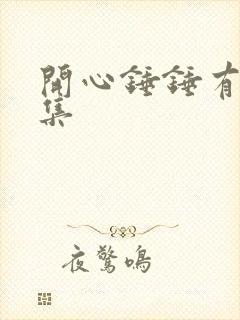 開心錘錘有
集
夜驚鳴